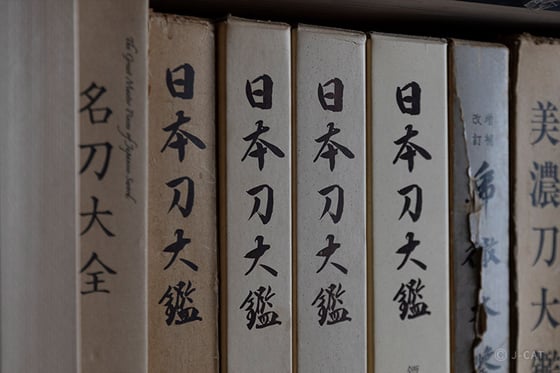 名刀大全
The Great Master Pieces of Japanese Sword
日本刀大鑑
日本刀大鑑
日本刀大鑑
日本刀大鑑
増補
改訂
美濃刀大鑑
© J-CAT